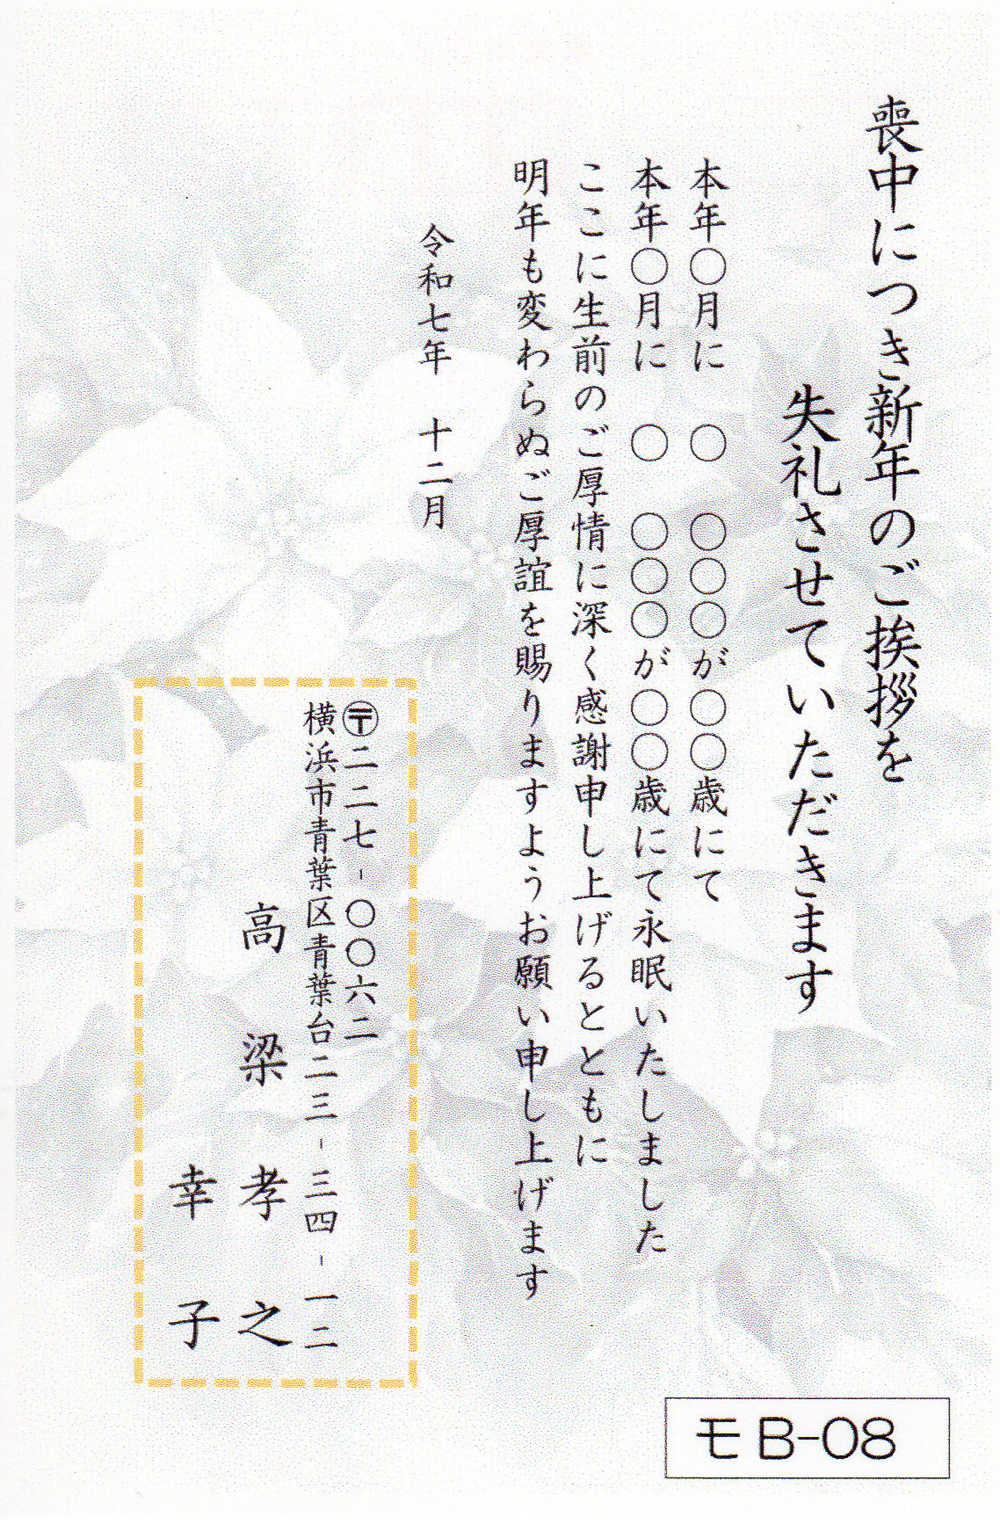 喪中につき新年のご挨拶を
失礼させていただきます
本年〇月に　〇　〇〇〇が〇〇歳にて
本年〇月に　〇　〇〇〇が〇〇歳にて永眠いたしました
ここに生前のご厚情に深く感謝申し上げるとともに
明年も変わらぬご厚誼を賜りますようお願い申し上げます
令和七年　十二月
〒二二七-〇〇六二
横浜市青葉区青葉台二三-三四-一二
高梁孝之
幸子
モB-08